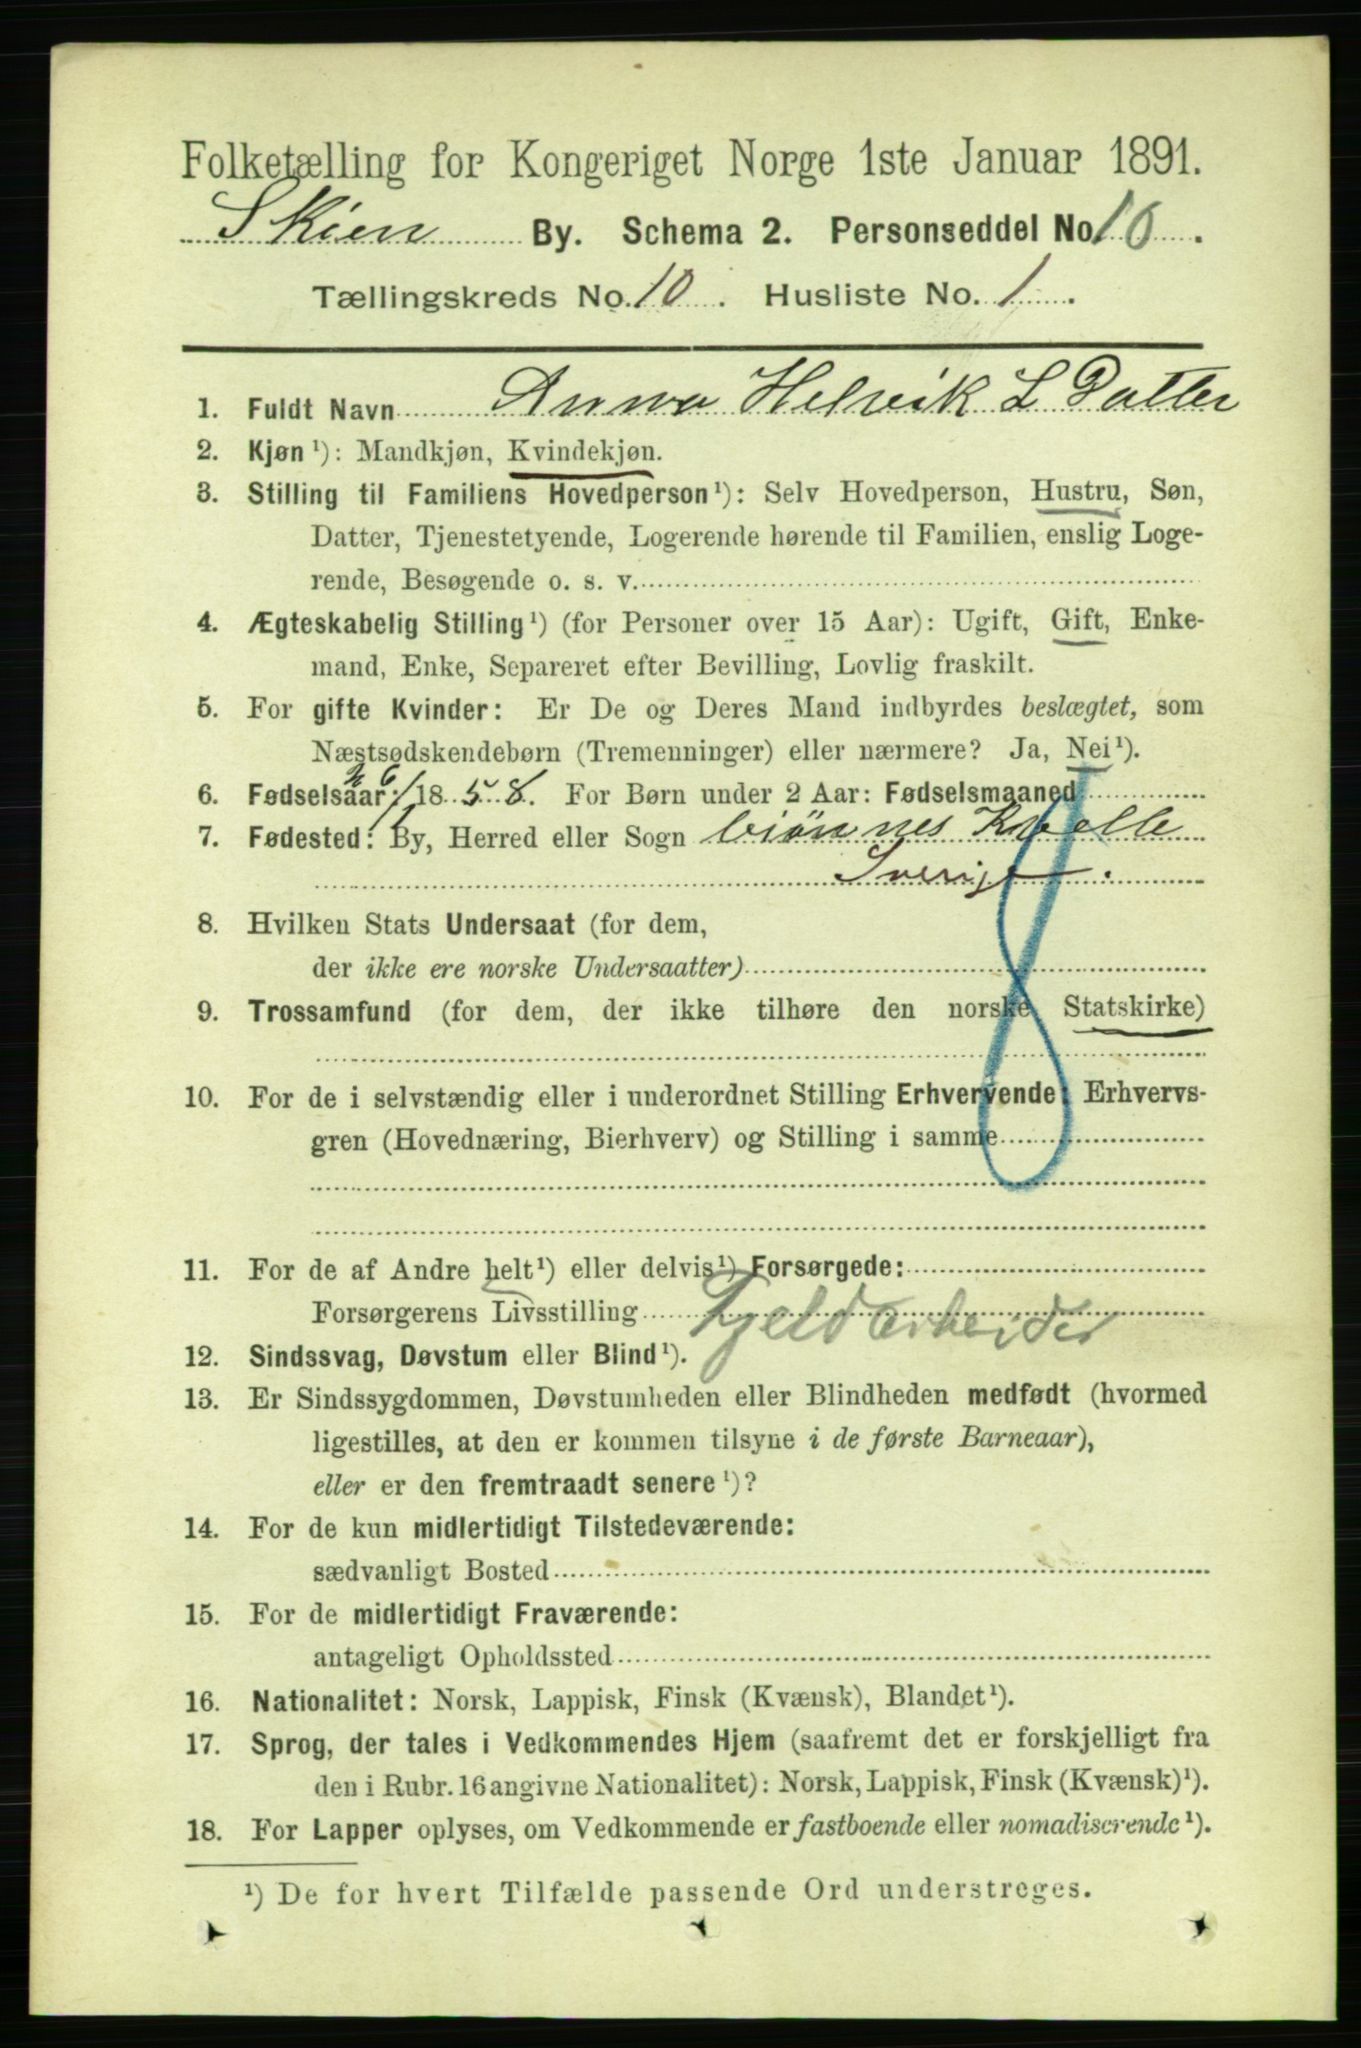 Folketælling for Kongeriget Norge 1ste Januar 1891.
Skien By. Schema 2. Personseddel No 10.
Tællingskreds No. 10. Husliste No. 1.
1. Fuldt Navn Anna Helvik L Datter
2. Kjøn ¹): Mandkjøn, Kvindekjøn.
3. Stilling til Familiens Hovedperson ¹): Selv Hovedperson, Hustru, Søn,
Datter, Tjenestetyende, Logerende hørende til Familien, enslig Loge-
rende, Besøgende o. s. v.
4. Ægteskabelig Stilling ¹) (for Personer over 15 Aar): Ugift, Gift, Enke-
mand, Enke, Separeret efter Bevilling, Lovlig fraskilt.
5. For gifte Kvinder: Er De og Deres Mand indbyrdes beslægtet, som
Næstsødskendebørn (Tremenninger) eller nærmere? Ja, Nei ¹).
6. Fødselsaar: 1858. For Børn under 2 Aar: Fødselsmaaned
7. Fødested: By, Herred eller Sogn
Sverige.
8. Hvilken Stats Undersaat (for dem,
der ikke ere norske Undersaatter)
9. Trossamfund (for dem, der ikke tilhøre den norske Statskirke)
10. For de i selvstændig eller i underordnet Stilling Erhvervende: Erhvervs-
gren (Hovednæring, Bierhverv) og Stilling i samme
11. For de af Andre helt ¹) eller delvis ¹) Forsørgede:
Forsørgerens Livsstilling Fjeldarbeider
12. Sindssvag, Døvstum eller Blind ¹).
13. Er Sindssygdommen, Døvstumheden eller Blindheden medfødt (hvormed
ligestilles, at den er kommen tilsyne i de første Barneaar),
eller er den fremtraadt senere ¹)?
14. For de kun midlertidigt Tilstedeværende:
sædvanligt Bosted
15. For de midlertidigt Fraværende:
antageligt Opholdssted
16. Nationalitet: Norsk, Lappisk, Finsk (Kvænsk), Blandet ¹).
17. Sprog, der tales i Vedkommendes Hjem (saafremt det er forskjelligt fra
den i Rubr. 16 angivne Nationalitet): Norsk, Lappisk, Finsk (Kvænsk) ¹).
18. For Lapper oplyses, om Vedkommende er fastboende eller nomadiserende ¹).
¹) De for hvert Tilfælde passende Ord understreges.